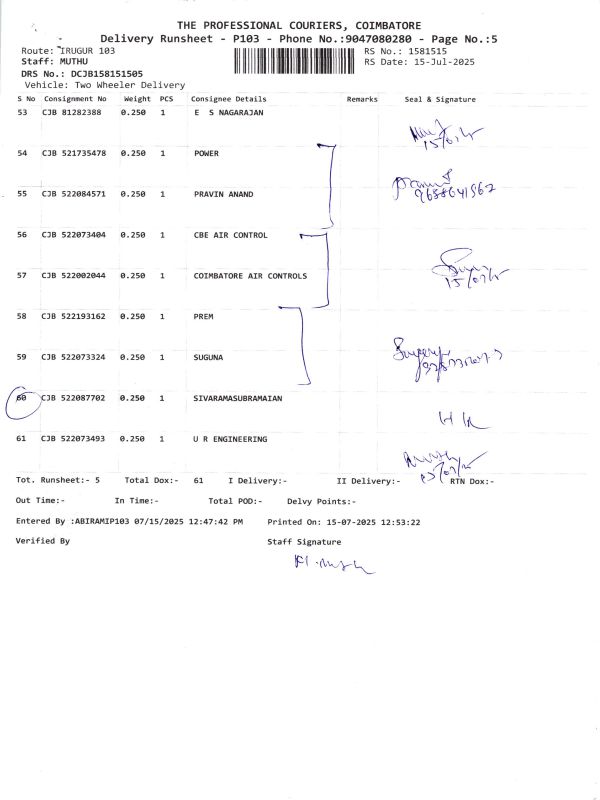 THE PROFESSIONAL COURIERS, COIMBATORE
Delivery Runsheet - P103 - Phone No.:9047080280 - Page No.:5
Route: IRUGUR 103 RS No.: 1581515
Staff: MUTHU RS Date: 15-Jul-2025
DRS No.: DCJB158151505
Vehicle: Two Wheeler Delivery
S No Consignment No Weight PCS Consignee Details Remarks Seal & Signature
53 CJB 81282388 0.250 1 E S NAGARAJAN
54 CJB 521735478 0.250 1 POWER
55 CJB 522084571 0.250 1 PRAVIN ANAND
56 CJB 522073404 0.250 1 CBE AIR CONTROL
57 CJB 522002044 0.250 1 COIMBATORE AIR CONTROLS
15/07/25
58 CJB 522193162 0.250 1 PREM
59 CJB 522073324 0.250 1 SUGUNA
60 CJB 522087702 0.250 1 SIVARAMASUBRAMAIAN
61 CJB 522073493 0.250 1 U R ENGINEERING
Tot. Runsheet:- 5 Total Dox:- 61 I Delivery:- II Delivery:- RTN Dox:-
Out Time:- In Time:- Total POD:- Delvy Points:-
Entered By :ABIRAMIP103 07/15/2025 12:47:42 PM Printed On: 15-07-2025 12:53:22
Verified By Staff Signature